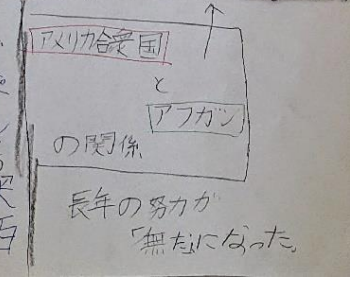 アメリカ合衆国
と
アフガン
の関係
長年の努力が
「無だになった。